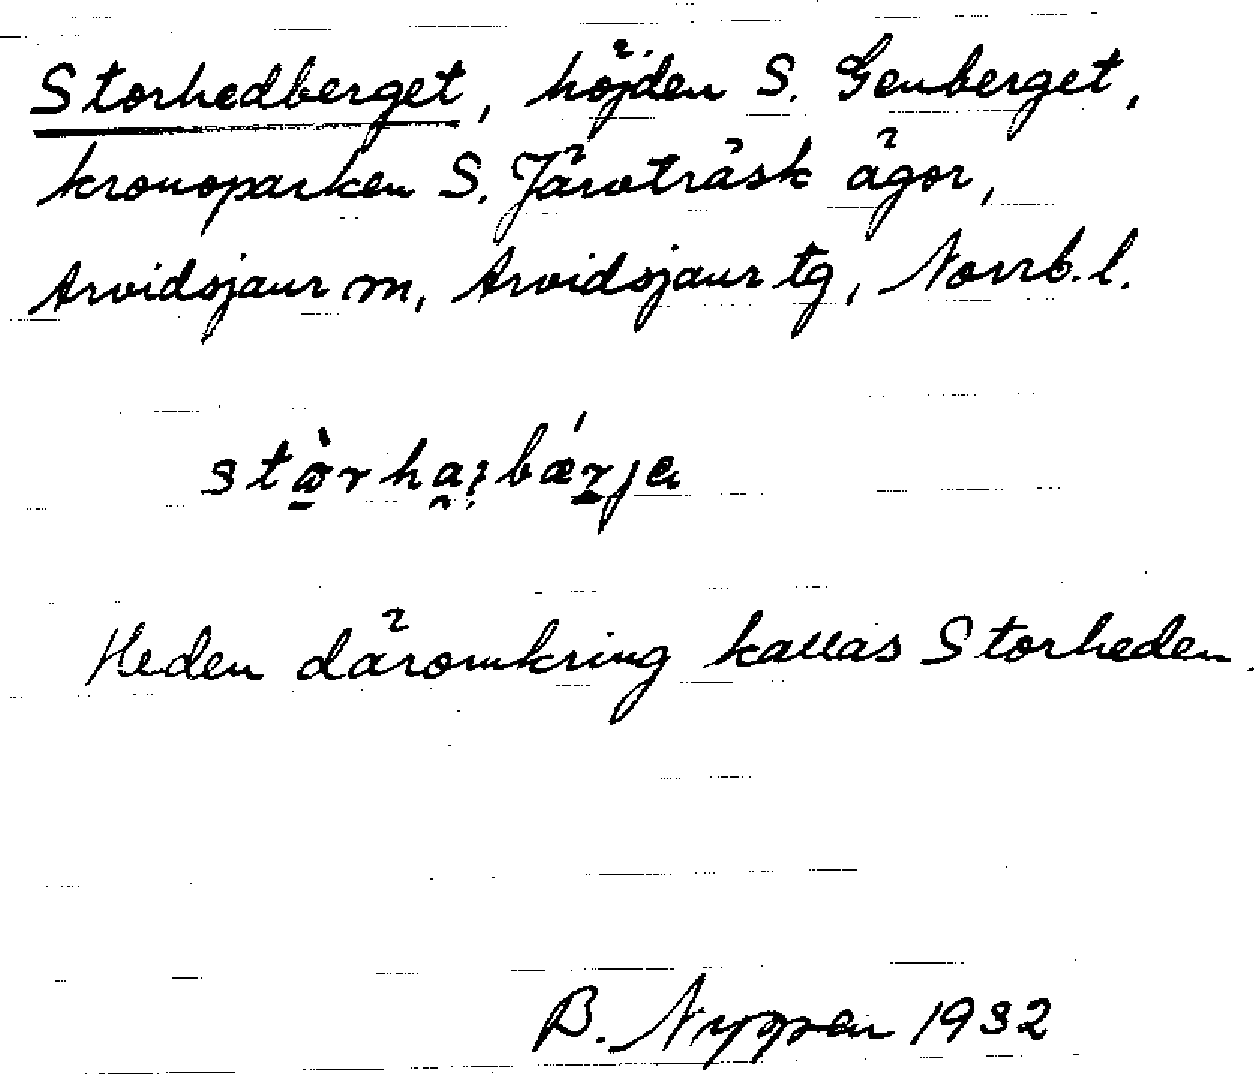 Storhedberget, höjden S. Genberget,
kronoparken S. Järvträsk ägor,
Arvidsjaur m, Arvidsjaur tg, Norrb. l.
Heden däromkring kallas Storheden.
B. Nyppen 1932